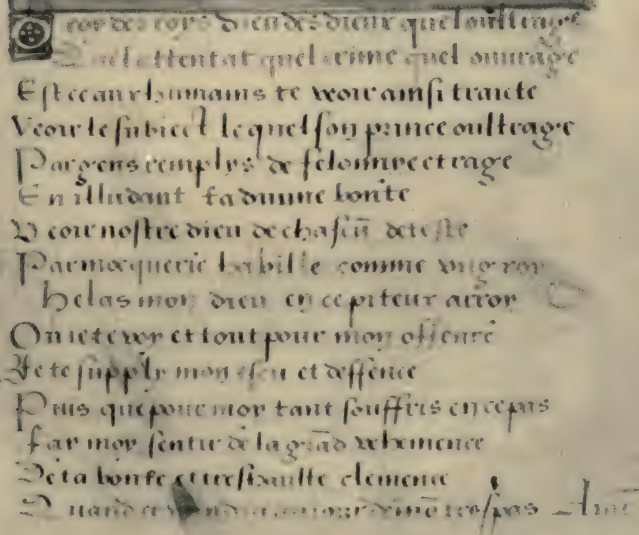 Roy des roys dieu des dieux quel oultrage
Quel attentat quel crime quel ouurage
Est ce aux humains te veoir ainsi traicte
Veoir le subiect lequel son prince oultrage
Par gens remplys de felonnye et rage
En illudant sa diuine bonte
Veoir nostre dieu de chascū deteste
Par mocquerie habille comme vng roy
Helas mon dieu en ce piteux arroy
On ie te voy et tout pour mon offence
Je te supply mon escu et deffence
Puis que pour moy tant souffris en ce pas
Fay moy sentir de la grād vehemence
De ta bonte et treshaulte clemence
Quand de mō trespas Amē